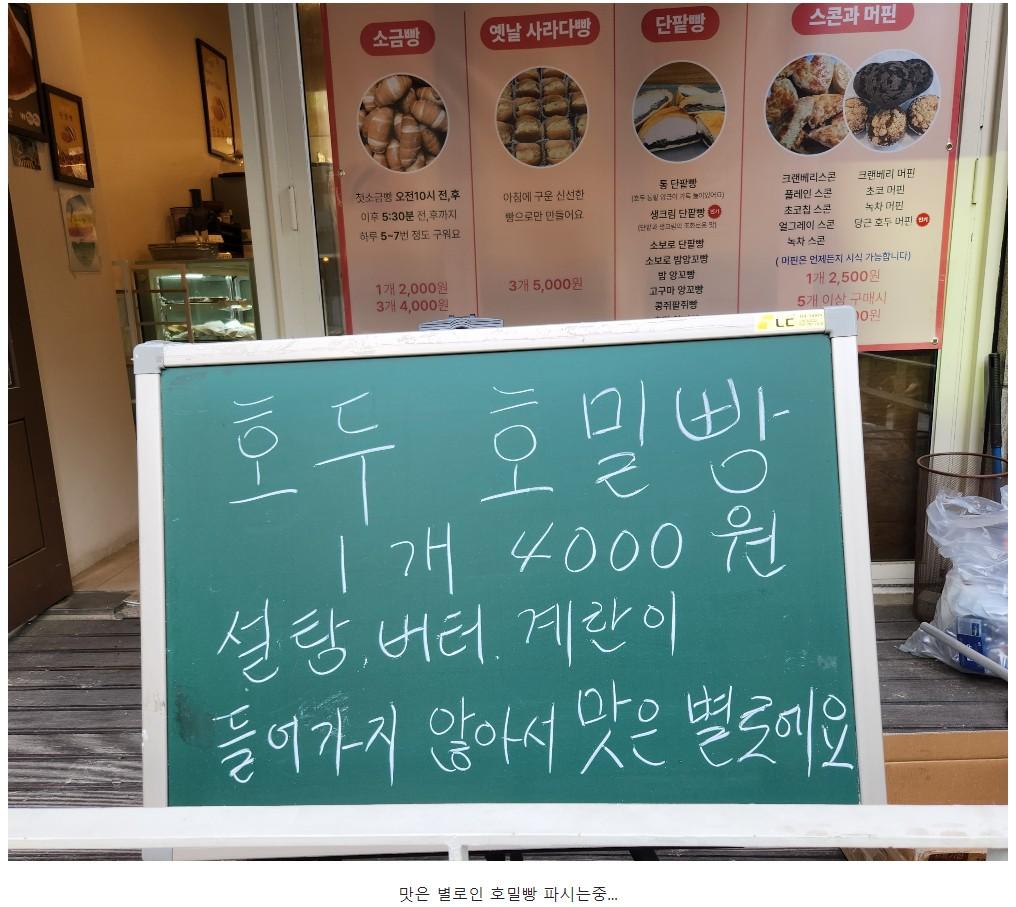 소금빵
첫소금빵 오전10시 전,후
이후 5:30분 전,후까지
하루 5~7번 정도 구워요
1개 2,000원
3개 4,000원
옛날 사라다빵
아침에 구운 신선한
빵으로만 만들어요
3개 5,000원
단팥빵
통 단팥빵
생크림 단팥빵 인기
소보로 단팥빵
소보로 밤앙꼬빵
밤 앙꼬빵
고구마 앙꼬빵
콩쥐팥쥐빵
스콘과 머핀
크랜베리스콘
플레인 스콘
초코칩 스콘
얼그레이 스콘
녹차 스콘
크랜베리 머핀
초코 머핀
녹차 머핀
당근 호두 머핀 인기
( 머핀은 언제든지 시식 가능합니다)
1개 2,500원
5개 이상 구매시
LC
호두 호밀빵
1개 4000원
설탕, 버터, 계란이
들어가지 않아서 맛은 별로에요
맛은 별로인 호밀빵 파시는중...